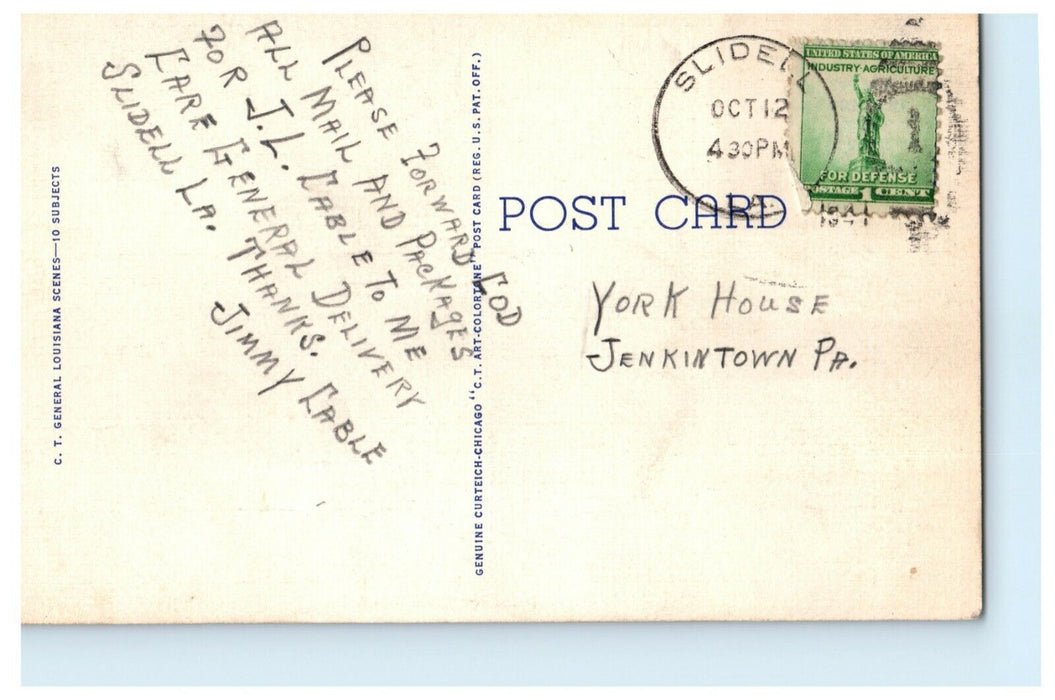 PLEASE FORWARD COD
ALL MAIL AND PACKAGES
FOR J.L. CABLE TO ME
CARE GENERAL DELIVERY
SLIDELL LA. THANKS.
JIMMY CABLE
C. T. GENERAL LOUISIANA SCENES—10 SUBJECTS
GENUINE CURTEICH-CHICAGO "C.T. ART-COLORTONE" POST CARD (REG. U.S. PAT. OFF.)
POST CARD
SLIDELL
OCT 12
4 30 PM
1941
UNITED STATES OF AMERICA
INDUSTRY·AGRICULTURE
FOR DEFENSE
POSTAGE 1 CENT
YORK HOUSE
JENKINTOWN PA.